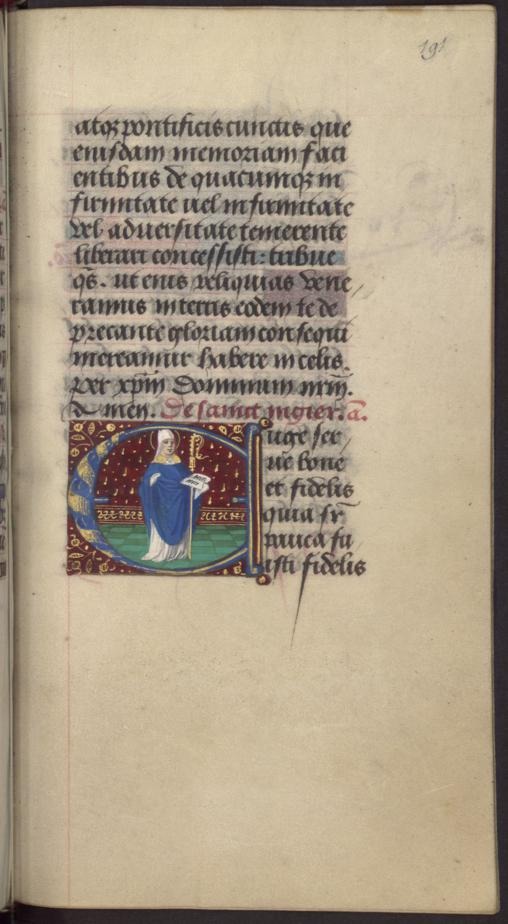 191
atqꝫ pontificis cunctis que
eiusdam memoriam faci
entibus de quacumqꝫ in
firmitate uel infirmitate
vel aduersitate temerente
liberari concessisti: tribue
q̄s. ut eius reliquias vene
ramus in terris eodem te de
precante gloriam consequi
mereamur habere in celis.
Per xp̄m Dominum nr̄m.
Amen. De sanct ingier. a.
Euge ser
ue bone
et fidelis
quia sr̄
pauca fu
isti fidelis